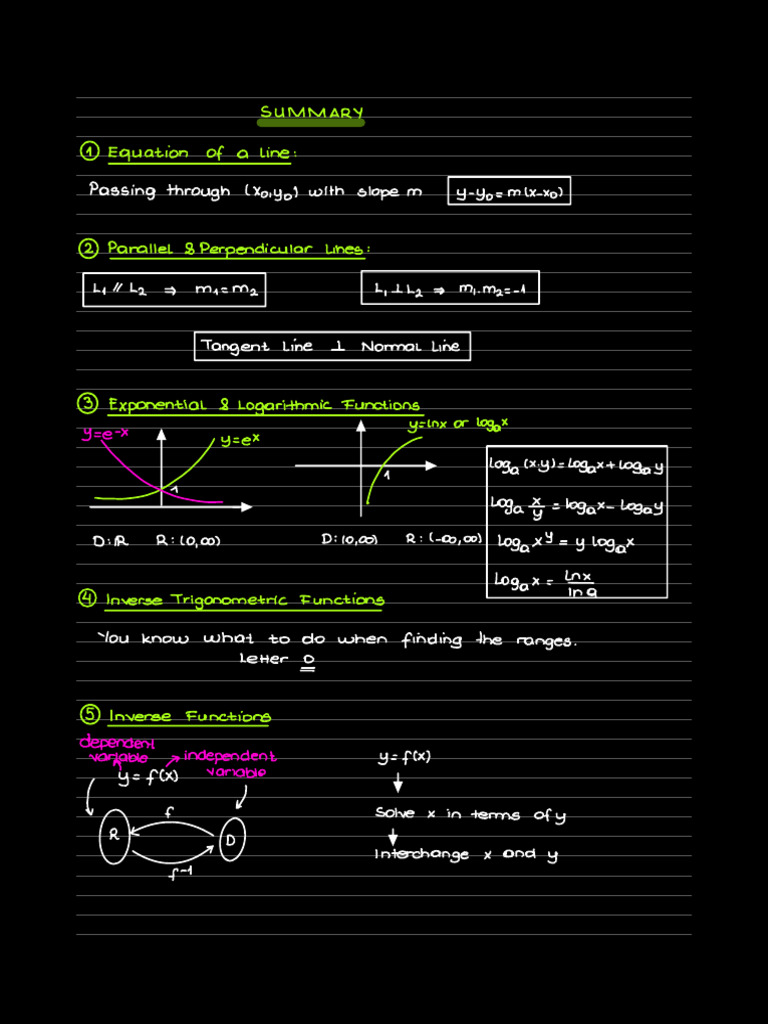 SUMMARY
① Equation of a line:
Passing through (x₀,y₀) with slope m
y-y₀=m(x-x₀)
② Parallel & Perpendicular Lines:
L₁ // L₂ ⇒ m₁=m₂
L₁⊥L₂ ⇒ m₁.m₂=-1
Tangent Line ⊥ Normal Line
③ Exponential & Logarithmic Functions
y=e⁻ˣ
y=eˣ
1
D:ℝ R:(0,∞)
y=lnx or logₐx
1
D:(0,∞) R:(-∞,∞)
logₐ(x.y)=logₐx+logₐy
logₐ x/y = logₐx-logₐy
logₐxʸ = y logₐx
logₐx = lnx/lna
④ Inverse Trigonometric Functions
You know what to do when finding the ranges.
Letter D
⑤ Inverse Functions
dependent
variable
independent
variable
y=f(x)
f
R
D
f⁻¹
y=f(x)
Solve x in terms of y
Interchange x and y